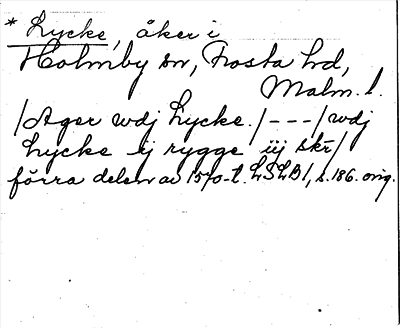 * Lycke, åker i
Holmby sn, Frosta hd,
Malm. l.
/Ager wdj Lycke./---/wdj
Lycke ij rygge iij skr/
förra delen av 1570-t. LSLB1, s. 186. orig.